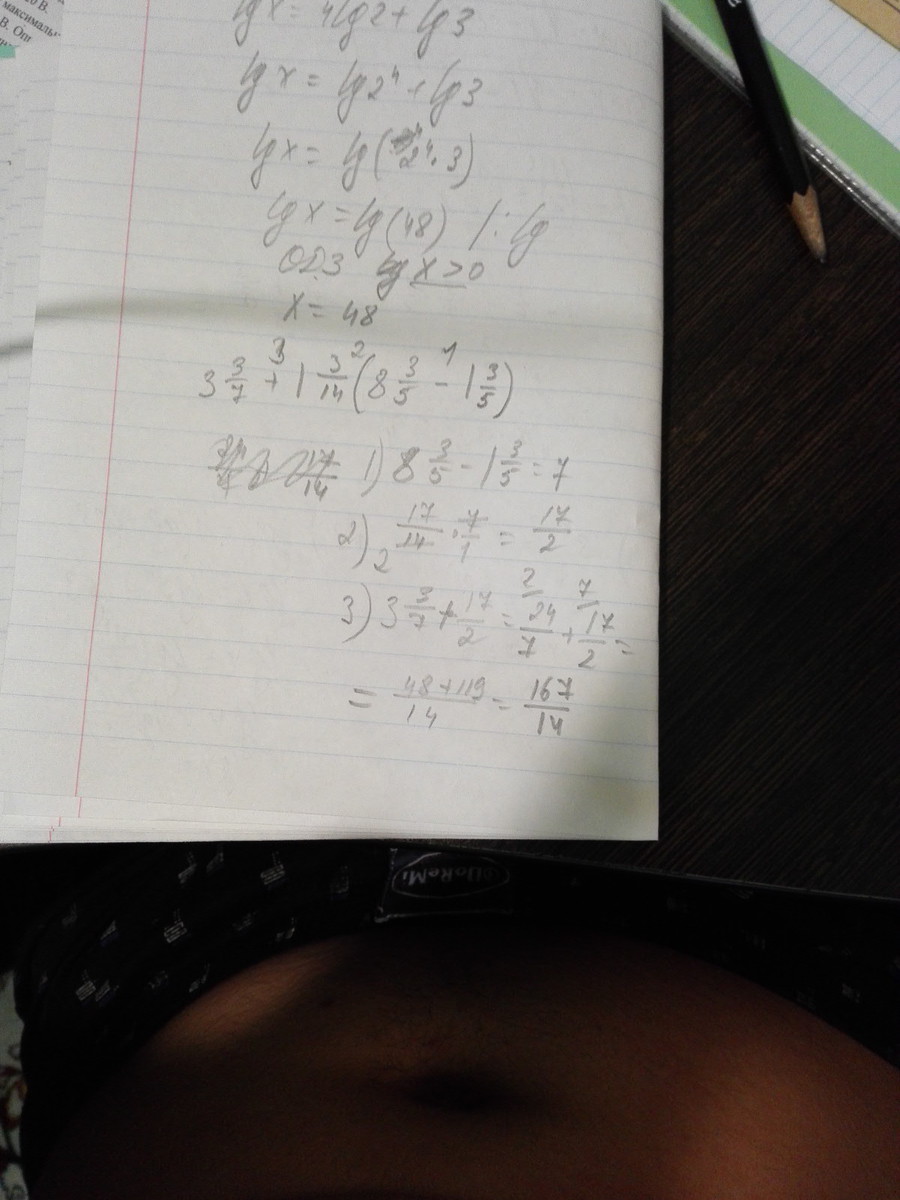 о В.
максималь
В. Опр
lg x = 4lg2 + lg3
lg x = lg2⁴ + lg3
lg x = lg(2⁴·3)
lg x = lg(48) /: lg
ОДЗ x > 0
x = 48
3 3/7 + 1 3/14 (8 3/5 − 1 3/5)
3 2 1
17/14
1) 8 3/5 − 1 3/5 = 7
2) 17/14 · 7/1 = 17/2
2
3) 3 3/7 + 17/2 = 24/7 + 17/2 =
2 7
= 48+119/14 = 167/14
DoReMi